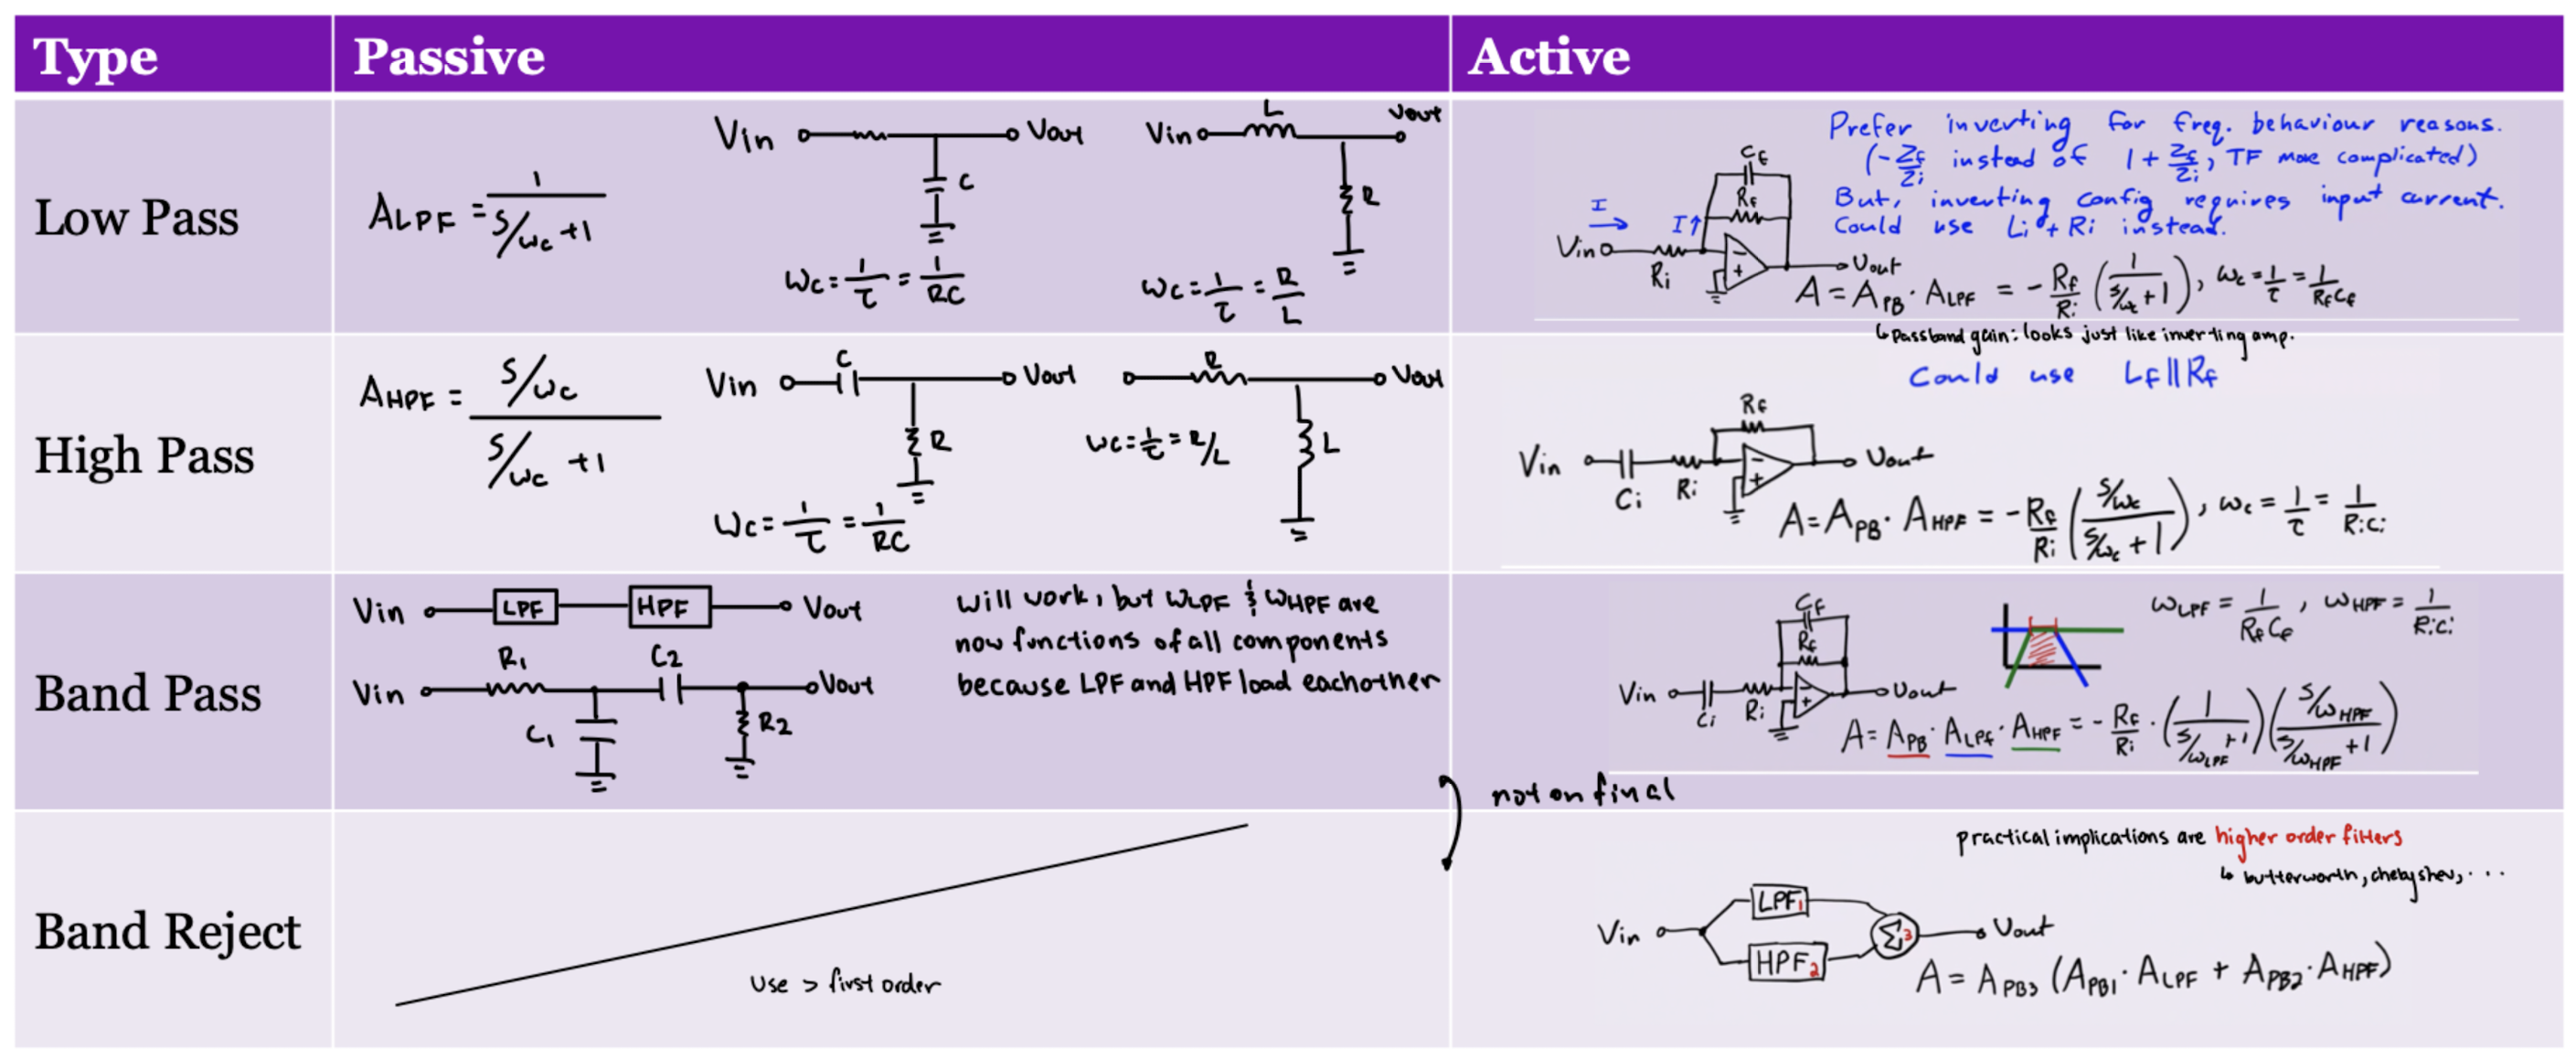 Type Passive Active
Low Pass
A_LPF = 1 / (s/ω_c + 1)
Vin Vout
C
ω_c = 1/τ = 1/RC
Vin L Vout
R
ω_c = 1/τ = R/L
Prefer inverting for freq. behaviour reasons.
(-Zf/Zi instead of 1 + Zf/Zi, TF more complicated)
But, inverting config requires input current.
Could use Li + Ri instead.
Cf
Rf
I I↑
Vin Ri - + Vout
A = A_PB · A_LPF = - Rf/Ri (1 / (s/ω_c + 1)), ω_c = 1/τ = 1/RfCf
↳ Passband gain: looks just like inverting amp.
High Pass
A_HPF = (s/ω_c) / (s/ω_c + 1)
Vin C Vout
R
ω_c = 1/τ = 1/RC
R Vout
L
ω_c = 1/τ = R/L
Could use Lf || Rf
Rf
Vin Ci Ri - + Vout
A = A_PB · A_HPF = - Rf/Ri ((s/ω_c) / (s/ω_c + 1)), ω_c = 1/τ = 1/RiCi
Band Pass
Vin LPF HPF Vout
Vin R1 C2 Vout
C1 R2
will work, but ω_LPF & ω_HPF are
now functions of all components
because LPF and HPF load eachother
Cf
Rf
Vin Ci Ri - + Vout
ω_LPF = 1/RfCf, ω_HPF = 1/RiCi
A = A_PB · A_LPF · A_HPF = - Rf/Ri · (1 / (s/ω_LPF + 1)) ((s/ω_HPF) / (s/ω_HPF + 1))
not on final
Band Reject
Use > first order
practical implications are higher order filters
↳ butterworth, chebyshev, ...
Vin LPF1 HPF2 Σ3 Vout
A = A_PB3 (A_PB1 · A_LPF + A_PB2 · A_HPF)